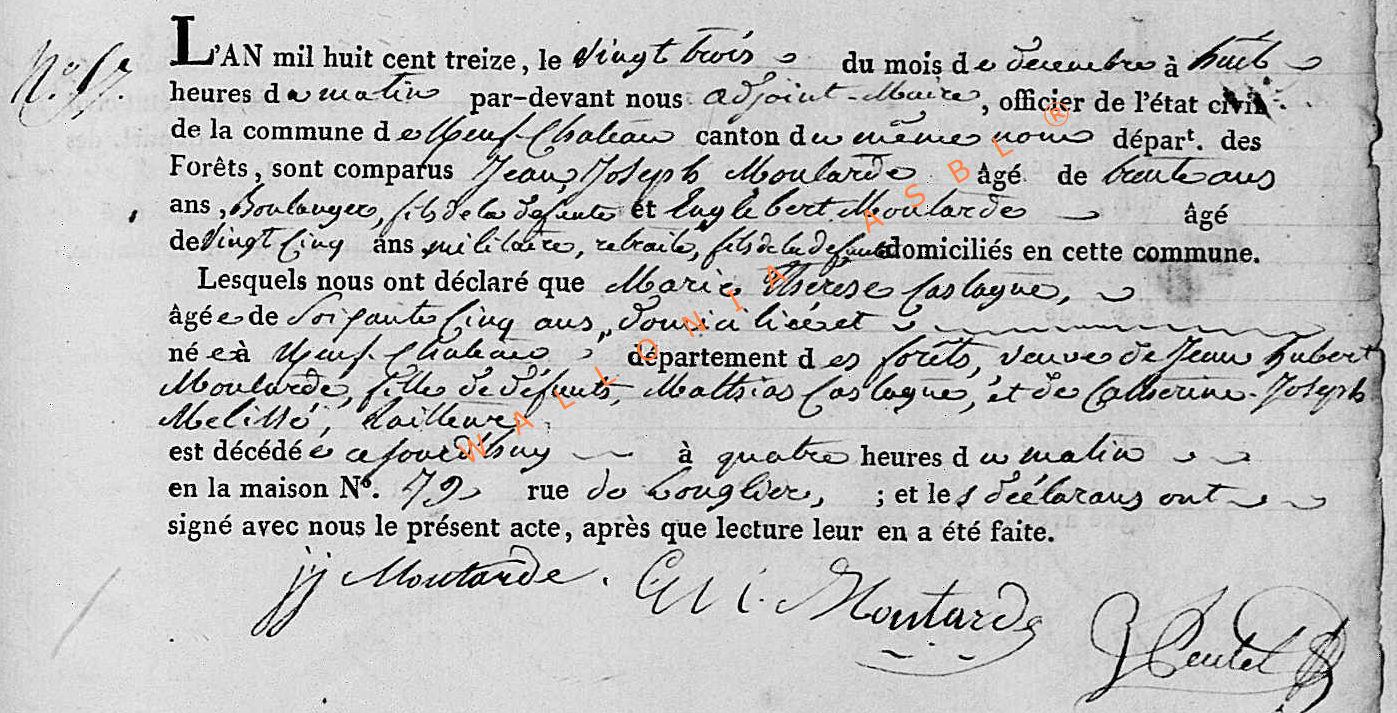 N.° 57.
L'AN mil huit cent treize, le vingt trois du mois de decembre à huit
heures du matin par-devant nous adjoint-Maire, officier de l'état civil
de la commune de Neuf-Chateau canton du même nom départ. des
Forêts, sont comparus Jean Joseph Moutarde âgé de trente ans
ans, Boulanger, fils de la defunte et Englebert Moutarde âgé
de vingt Cinq ans militaire, retraité, fils de la defunte domiciliés en cette commune.
Lesquels nous ont déclaré que Marie Thérese Castagne,
âgée de Soixante Cinq ans, domiciliée et
née à Neuf-Chateau département des forêts, veuve de Jean hubert
Moutarde, fille de défunts, Mathias Castagne, et de Catherine-Joseph
Melissé,
est décédée cejourd'huy à quatre heures du matin
en la maison N°. 72 rue de Longlier, ; et les déclarans ont
signé avec nous le présent acte, après que lecture leur en a été faite.
jj Moutarde. Moutarde
WALLONIA ASBL ®